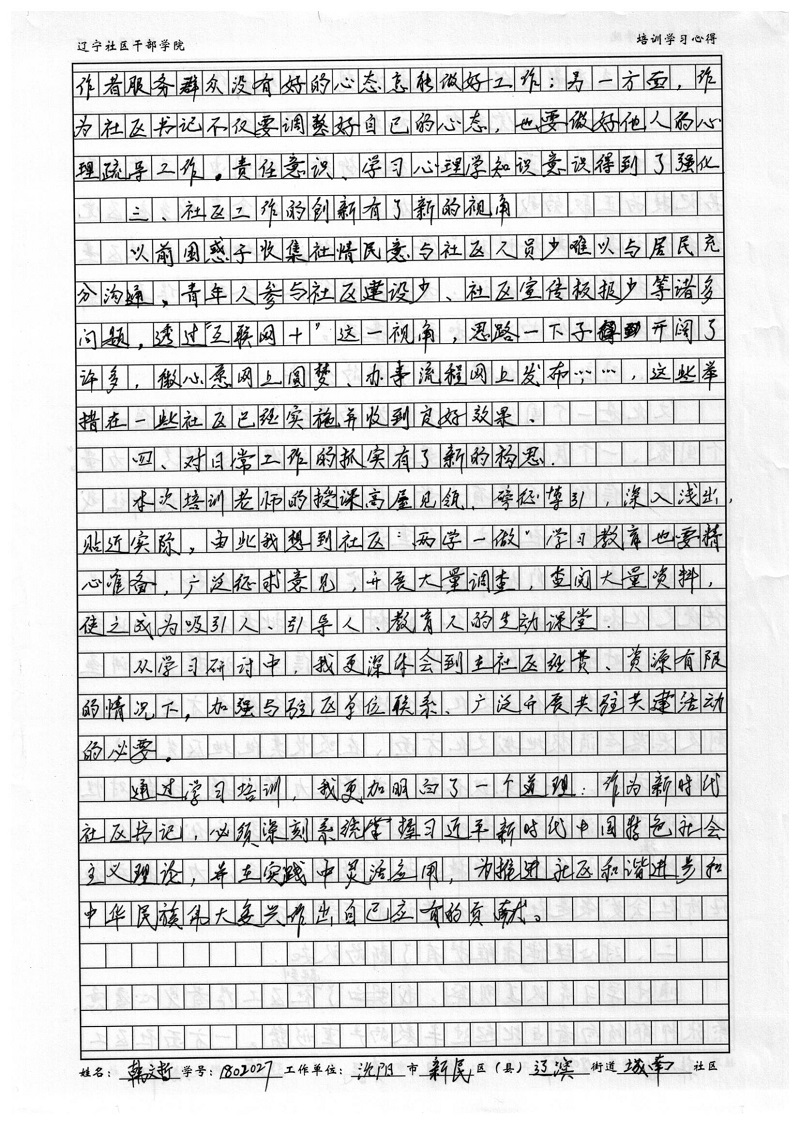 辽宁社区干部学院 培训学习心得
作者服务群众没有好的心态怎能做好工作；另一方面，作
为社区书记不仅要调整好自己的心态，也要做好他人的心
理疏导工作。责任意识、学习心理学知识意识得到了强化
三、社区工作的创新有了新的视角
以前困惑于收集社情民意与社区人员少难以与居民充
分沟通，青年人参与社区建设少、社区宣传板报少等诸多
问题，透过"互联网+"这一视角，思路一下子开阔了
许多，微心愿网上圆梦、办事流程网上发布……，这些举
措在一些社区已经实施并收到良好效果。
四、对日常工作的抓实有了新的构思.
本次培训老师的授课高屋见瓴，旁征博引，深入浅出，
贴近实际。由此我想到社区"两学一做"学习教育也要精
心准备，广泛征求意见，开展大量调查，查阅大量资料，
使之成为吸引人、引导人、教育人的生动课堂.
从学习研讨中，我更深体会到在社区经费、资源有限
的情况下，加强与驻区单位联系、广泛开展共驻共建活动
的必要。
通过学习培训，我更加明白了一个道理：作为新时代
社区书记，必须深刻系统掌握习近平新时代中国特色社会
主义理论，并在实践中灵活应用，为推进社区和谐进步和
中华民族伟大复兴作出自己应有的贡献。
姓名：韩哲 学号：1802027 工作单位：沈阳 市 新民 区（县）辽滨 街道 城南 社区